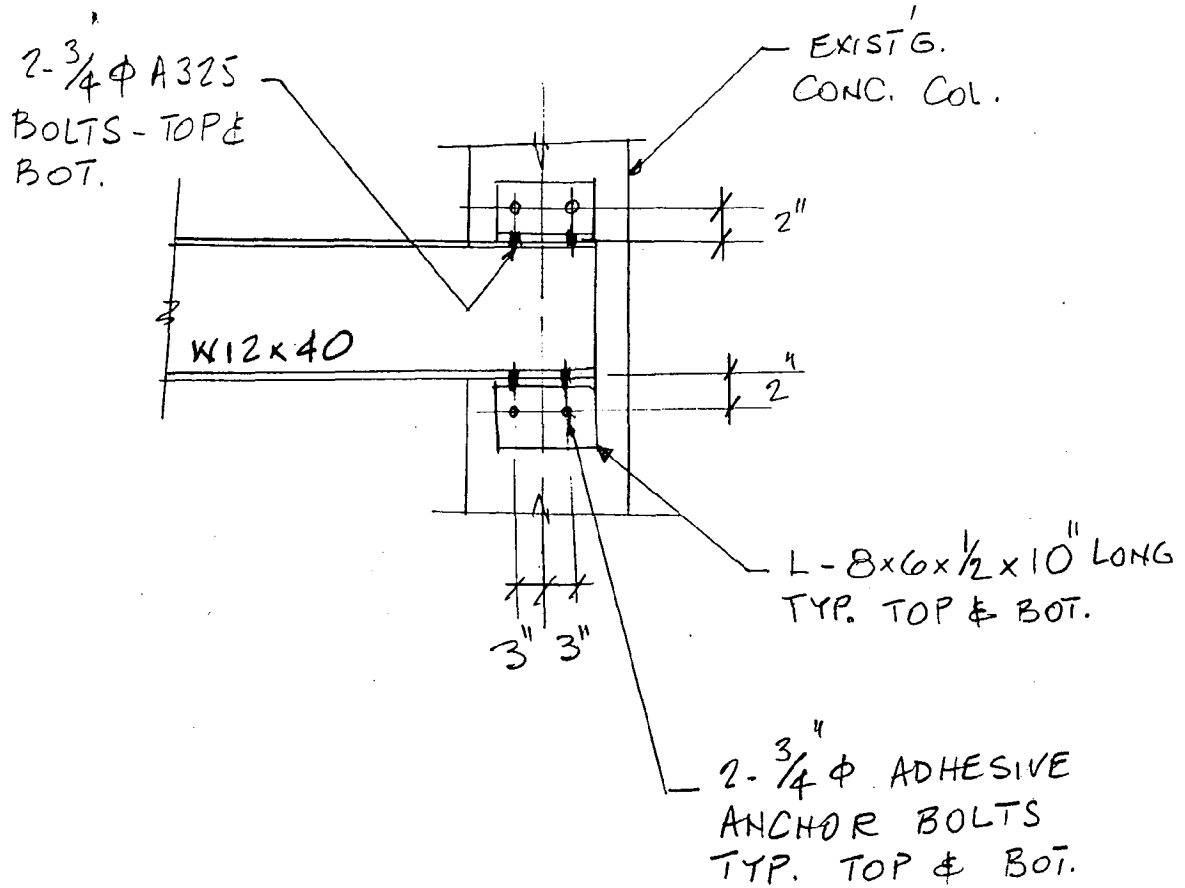 2-3/4 ϕ A325
BOLTS - TOP &
BOT.
EXIST'G.
CONC. COL.
2"
W12x40
2"
L-8x6x1/2x10" LONG
TYP. TOP & BOT.
3" 3"
2-3/4" ϕ ADHESIVE
ANCHOR BOLTS
TYP. TOP & BOT.